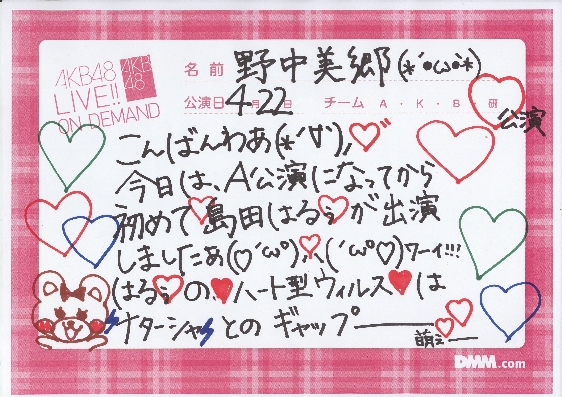 AKB48
LIVE!!
ON DEMAND
AKB
48
名前 野中美郷(*´•ω•`*)
公演日 4月22日 チーム A・K・B・研
公演
こんばんわぁ(*´∀`)ﾉ
今日は、A公演になってから
初めて島田はるぅが出演
しましたぁ(♡´ωº)人(´ωº♡)ワーイ!!!
はるぅの♥ハート型ウィルス♥は
ナターシャとのギャップ――
萌ぇ―
DMM.com